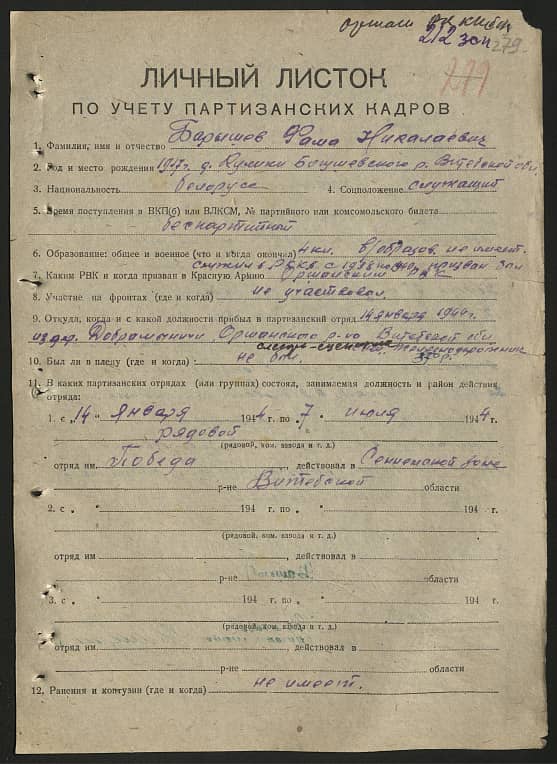 212 зоп
279
279
ЛИЧНЫЙ ЛИСТОК
ПО УЧЕТУ ПАРТИЗАНСКИХ КАДРОВ
1. Фамилия, имя и отчество Барышов Фама Николаевич
2. Год и место рождения 1917 г. д. Кулики Богушевского р. Витебской обл.
3. Национальность белорусс 4. Соцположение служащий
5. Время поступления в ВКП(б) или ВЛКСМ, № партийного или комсомольского билета
беспартийной
6. Образование: общее и военное (что и когда окончил) 4 кл. в/образов. не имеет.
служил в РККА с 1938 по 1940 призван
7. Каким РВК и когда призван в Красную Армию Оршанским РВК
8. Участие на фронтах (где и когда) не участвовал.
9. Откуда, когда и с какой должности прибыл в партизанский отряд 14 января 1944 г.
из дер. Оршанского р-на Витебской обл.
10. Был ли в плену (где и когда) не был.
11. В каких партизанских отрядах (или группах) состоял, занимаемая должность и район действия
отряда:
1. с „14 " января 194 4 г. по „ 7 " июля 194 4
рядовой
(рядовой, ком. взвода и т. д.)
отряд им. Победа, действовал в Сенненской зоне
р-не Витебской области
2. с „ " 194 г. по „ " 194 г.
(рядовой, ком. взвода и т. д.)
отряд им , действовал в
р-не области
3. с „ " 194 г. по „ " 194 г.
(рядовой, ком. взвода и т. д.)
отряд им , действовал в
р-не области
12. Ранения и контузии (где и когда) не имеет.